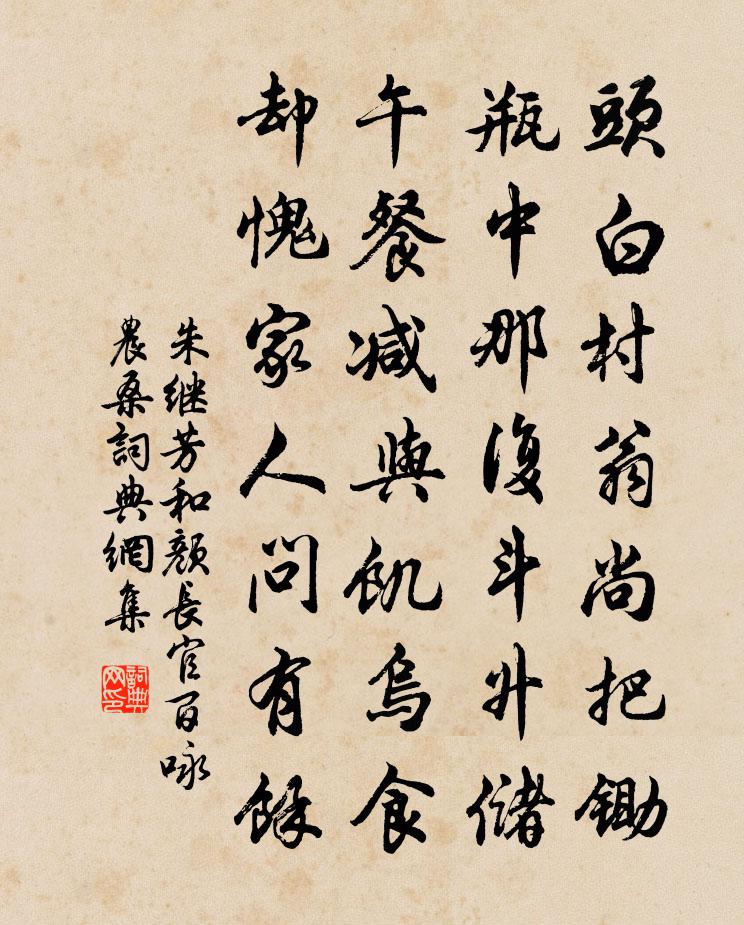 頭白村翁尚把鋤
瓶中那復斗升儲
午餐减與飢烏食
却愧家人問有餘
朱继芳和顏長官百咏
農桑詞典網集
詞典网印